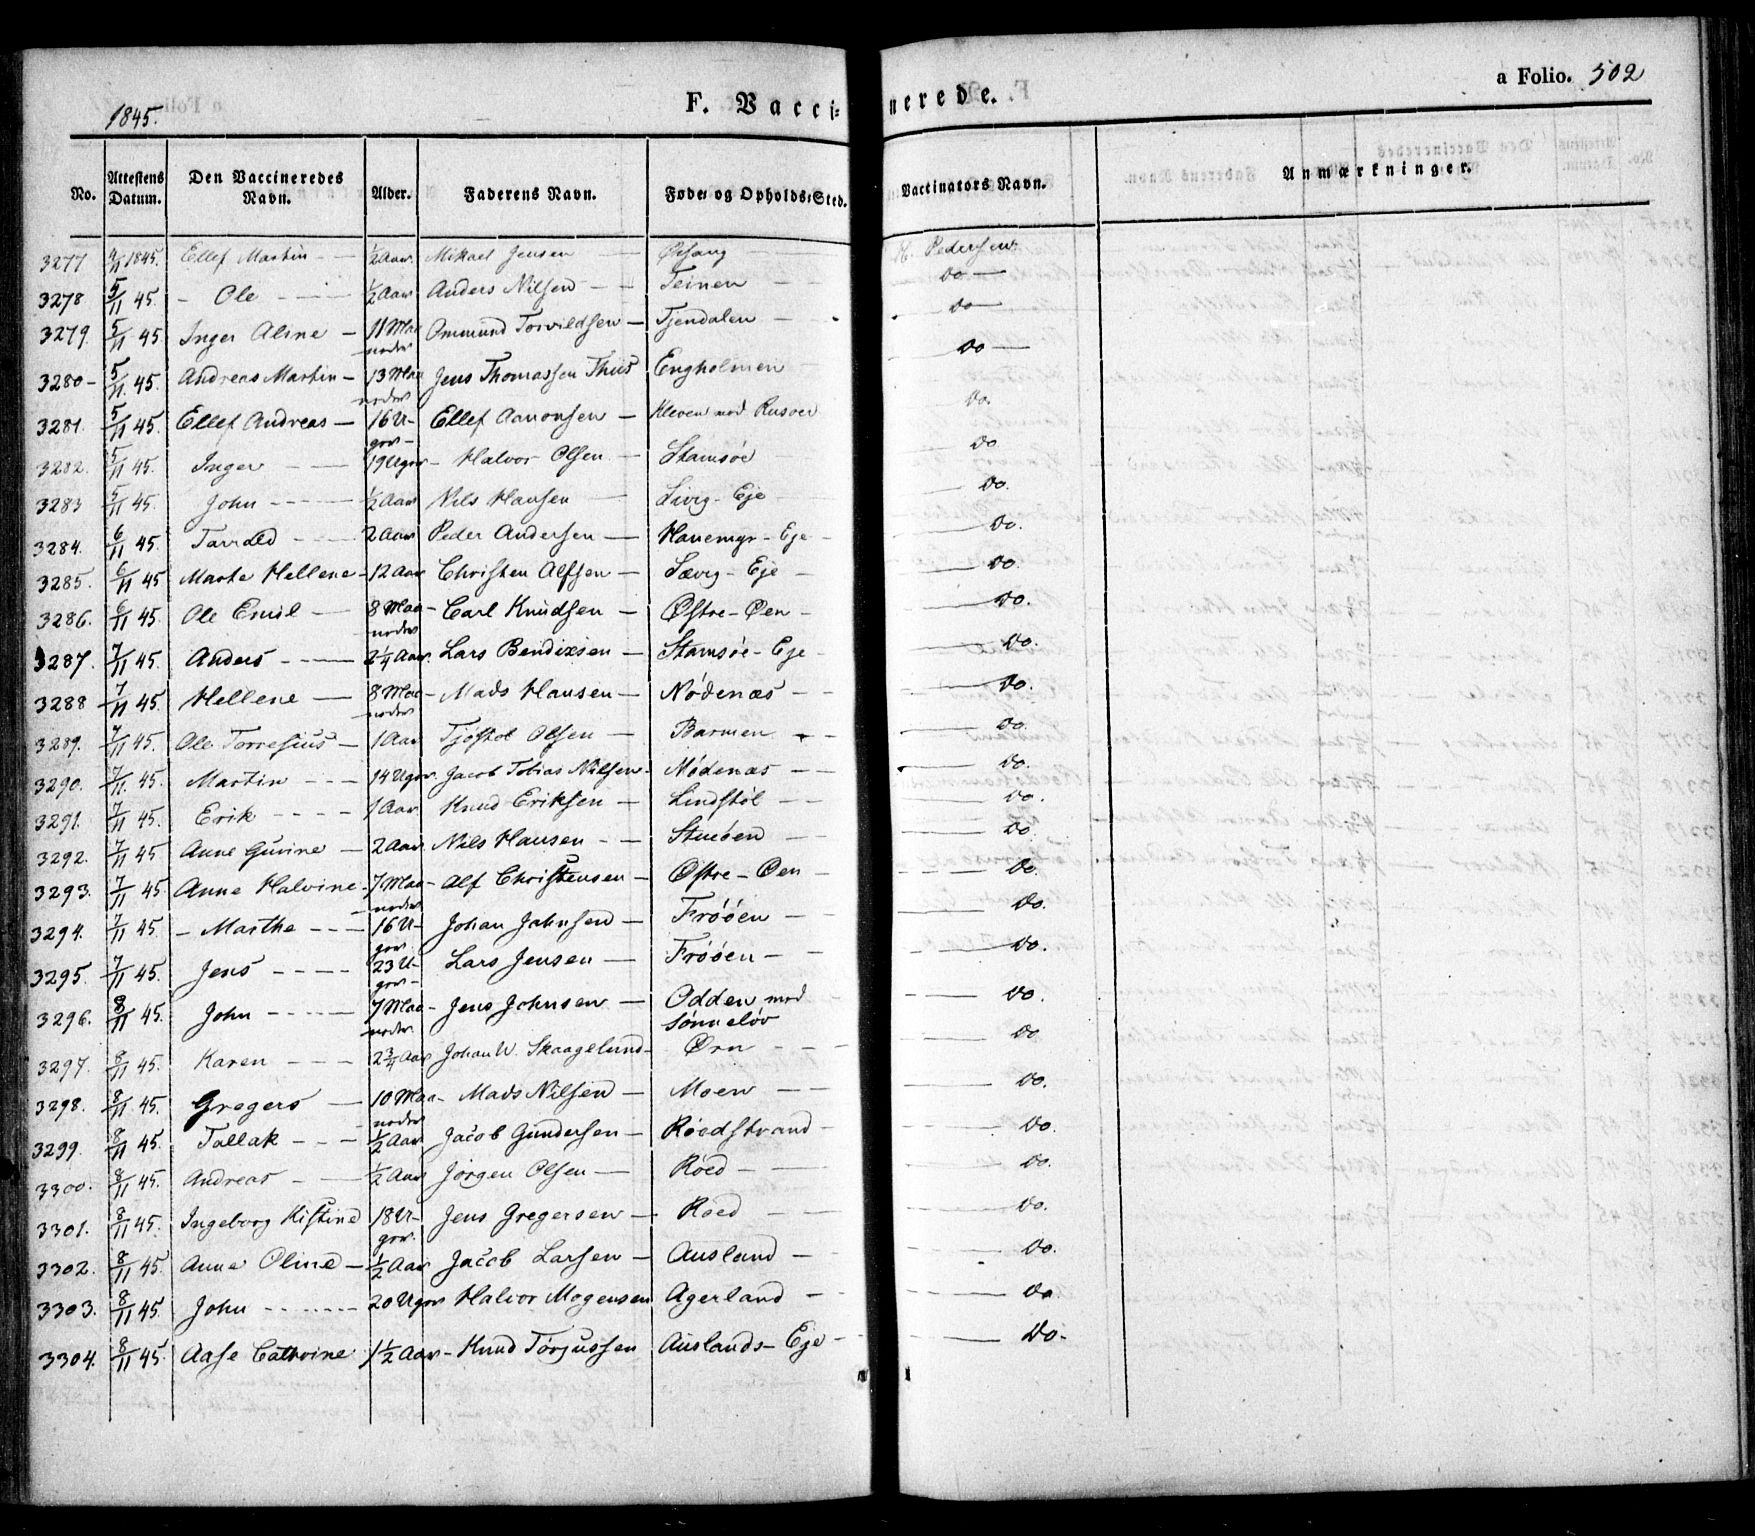 1845.
F. Vaccinerede.
a Folio. 502
No. Attestens Datum. Den Vaccineredes Navn. Alder. Faderens Navn. Føde- og Opholds-Sted. Vaccinators Navn. Anmærkninger.
3277 4/11 1845. Ellef Martin ½ Aar. Mikael Jensen H. Pedersen
3278 5/11 45. Ole ½ Aar Anders Nilsen Teinen Do
3279. 5/11 45 Inger Aline 11 Maaneder Ommund Torvildsen Tjendalen Do
3280 5/11. 45. Andreas Martin 13 Maaneder Jens Thomassen Thiis Engholmen Do
3281. 5/11 45. Ellef Andreas 16 Uger Ellef Aanonsen Kleven med Rusøer Do.
3282. 5/11 45. Inger 19 Uger Halvor Olsen Stamsøe Do
3283 5/11 45. John ½ Aar Nils Hansen Sivig Eje Do.
3284. 6/11 45. Tarald 2 Aar Peder Andersen Hanemyr Eje Do.
3285. 6/11 45 Marte Hellene 12 Aar Christen Alfsen Sævig Eje Do.
3286. 6/11 45. Ole Emil 8 Maaneder Carl Knudsen Østre Øen Do.
3287. 7/11 45. Anders 2¼ Aar. Lars Bendixsen Stamsøe Eje Do.
3288 7/11 45. Hellene 8 Maaneder Mads Hansen Nødenæs Do.
3289. 7/11 45. Ole Torresius 1 Aar Tjøstol Olsen Barmen Do
3290. 7/11. 45. Martin 14 Uger. Jacob Tobias Nilsen Nødenæs Do.
3291. 7/11 45. Erik 1 Aar Knud Eriksen Lindstøl Do.
3292. 7/11 45 Anne Guvine 2 Aar Nils Hansen Stueøen Do.
3293. 7/11 45. Anne Halvine 7 Maaneder Alf Christensen Østre Øen Do.
3294. 7/11 45. Marthe 16 Uger Johan Jahnsen Frøøen Do.
3295. 7/11 45. Jens 23 Uger Lars Jensen Frøøen Do.
3296. 8/11 45. John 7 Maaneder Jens Johnsen Odden med Sønneløv Do.
3297. 8/11 45. Karen 2¾ Aar Johan W. Skaagelund Ørn Do
3298. 8/11 45. Gregers 10 Maaneder Mads Nilsen Moen Do.
3299. 8/11 45. Tallak ½ Aar Jacob Gundersen Røedstrand Do.
3300. 8/11 45. Andreas ½ Aar Jørgen Olsen Røed Do.
3301. 8/11 45. Ingeborg Kistine 18 Uger. Jens Gregersen Røed Do.
3302. 8/11 45. Anne Oline ½ Aar Jacob Larsen Ausland Do.
3303. 8/11 45. John 20 Uger Halvor Mogensen Agerland Do
3304. 8/11 45. Aase Cathrine 1½ Aar Knud Tørjussen Auslands Eje Do